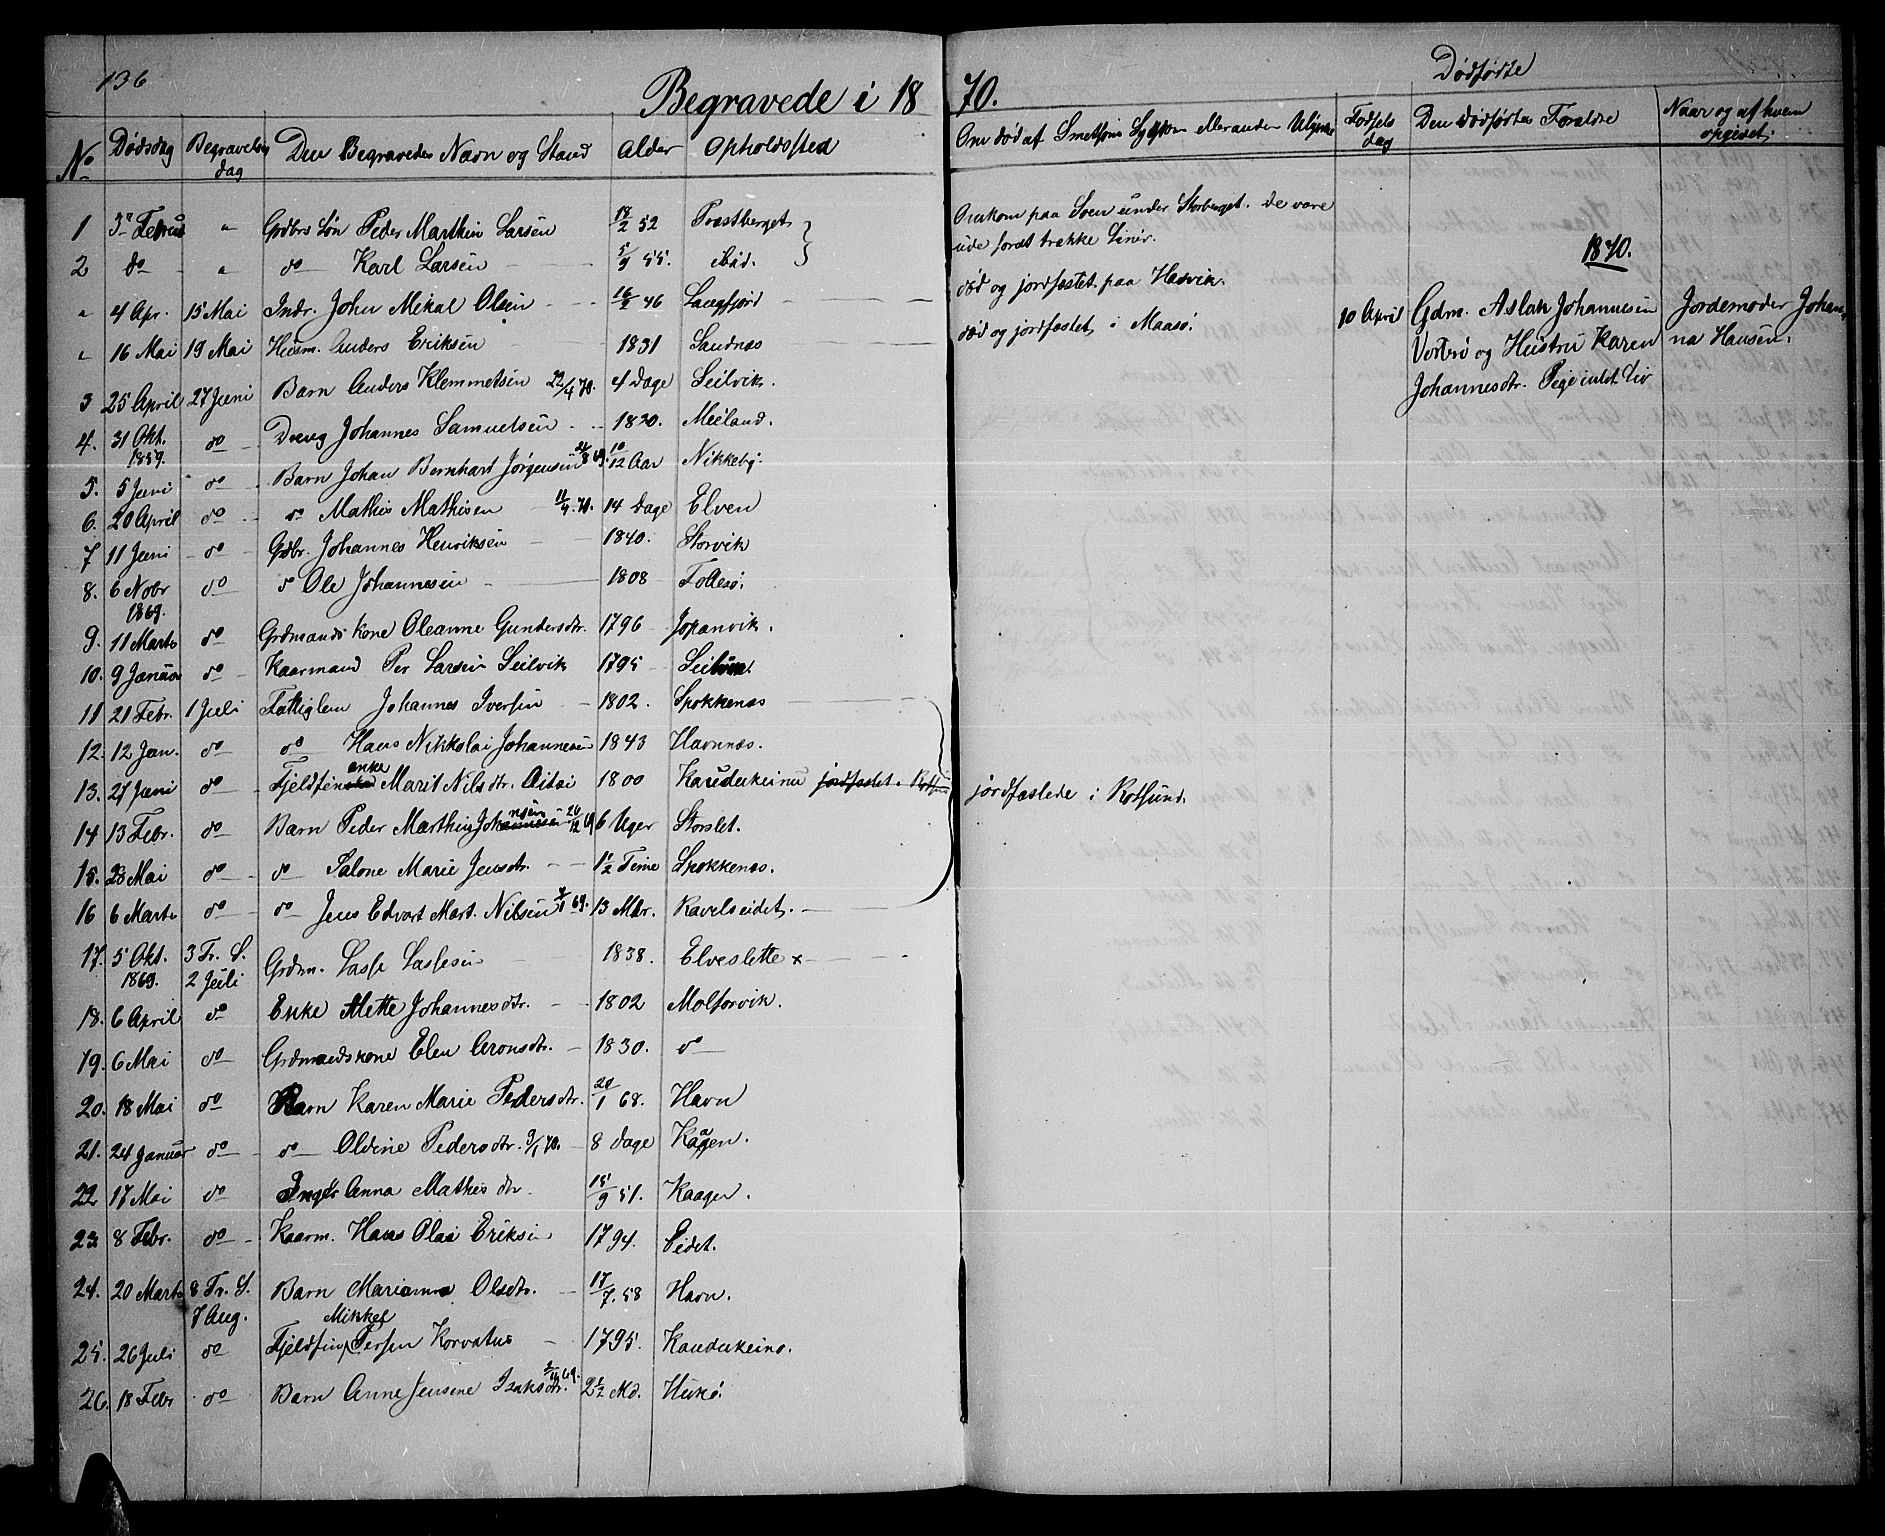 136
Begravede i 1870.
Dødfødte
No Dødsdag Begravelsesdag Den Begravedes Navn og Stand Alder Opholdssted Om død af Smetsom Sygdom eller anden Fødselsdag Den Dødfødtes Forældre Naar og af hvem opgivet.
1 3 Februar " Grdbrs Søn Peder Marthin Larsen 18/2 52 Præstberget Omkom paa Soen under Storberget. de vare
2 do - " do Karl Larsen 5/9 55. ibid. ude forat trække Liner.
1870.
" 4 Apr. 15 Mai Indr. John Mikal Olsen 16/2 46 Langfjord død og jordfæstet paa Hasvik.
" 16 Mai 19 Mai Husm. Anders Eriksen 1831 Sandnæs død og jordfæstet i Maasø.
10 April Gdm. Aslak Johannesen Jordemoder Johan-
og Hustru Karen na Hansen.
Johannesdtr. Pige
3 25 April 27 Juni Barn Anders Klemmetsen 22/4 70. 4 Dage Leilvik.
4. 31 Okt. 1859. do Dreng Johannes Samuelsen 1830. Meiland.
5. 5 Juni do Barn Johan Bernhart Jørgensen 69. 10/12 Aar Nikkeby.
6. 20 April do do Mathis Mathisen 70. 14 Dage Elven
7 11 Juni do Gdbr. Johannes Henriksen 1840. Storvik
8. 6 Nobr 1869. do do Ole Johannesen 1808 Follesø.
9. 11 Marts do Grdmands Kone Oleanne Gundersdtr. 1796 Jøpanvik.
10. 9 Januar do Kaarmand Per Larsen Leilvik 1795
11 21 Febr. 1 Juli Fattiglem Johannes Iversen 1802. Spokkenæs
12. 12 Jan. do do Hans Nikkolai Johannesen 1843 Havnnæs.
13. 27 Juni do Fjeldfin enke Marit Nilsdtr. 1800 Kaudukeinu jordfæstet i jordfæstede i Rotsund.
14 13 Febr. do Barn Peder Marthin Johannesen nsen 26/12 69 6 Uger Storslet.
15. 28 Mai do do Salone Marie Jensdtr. 1/2 Time Spokkenæs.
16 6 Marts do do Jens Edvart Mart. Nilsen 69. 13 Mdr. Ravelseidet.
17. 5 Okt. 1869. 3 Tr. S. 2 Juli Grdm. Lasse Lassesen 1838. Elveslette x
18. 6 April do Enke Mette Johannesdtr. 1802 Molforvik.
19. 6 Mai do Grdmandskone Elen Aronsdtr. 1830. do
20. 18 Mai do Barn Karen Marie Pedersdtr. 20/1 68. Havn
21. 24 Januar do do Oldine Pedersdtr. 70. 8 Dage Kaagen.
22 17 Mai do Inger Anna Mathisdtr. 15/9 51. Kaagen.
23 8 Febr. do Kaarm. Hans Olai Eriksen 1794. Eidet.
24. 20 Marts 8 Tr. S. 7 Aug. Barn Marianna Olsdtr. 17/7. 58 Havn.
25. 26 Juli do Fjeldfin Mikkel Persen Korvatus 1795. Kaudukeino.
26. 18 Febr do Barn Anne Jensine Isaksdtr. 69. 2 1/2 Md. Hukø.